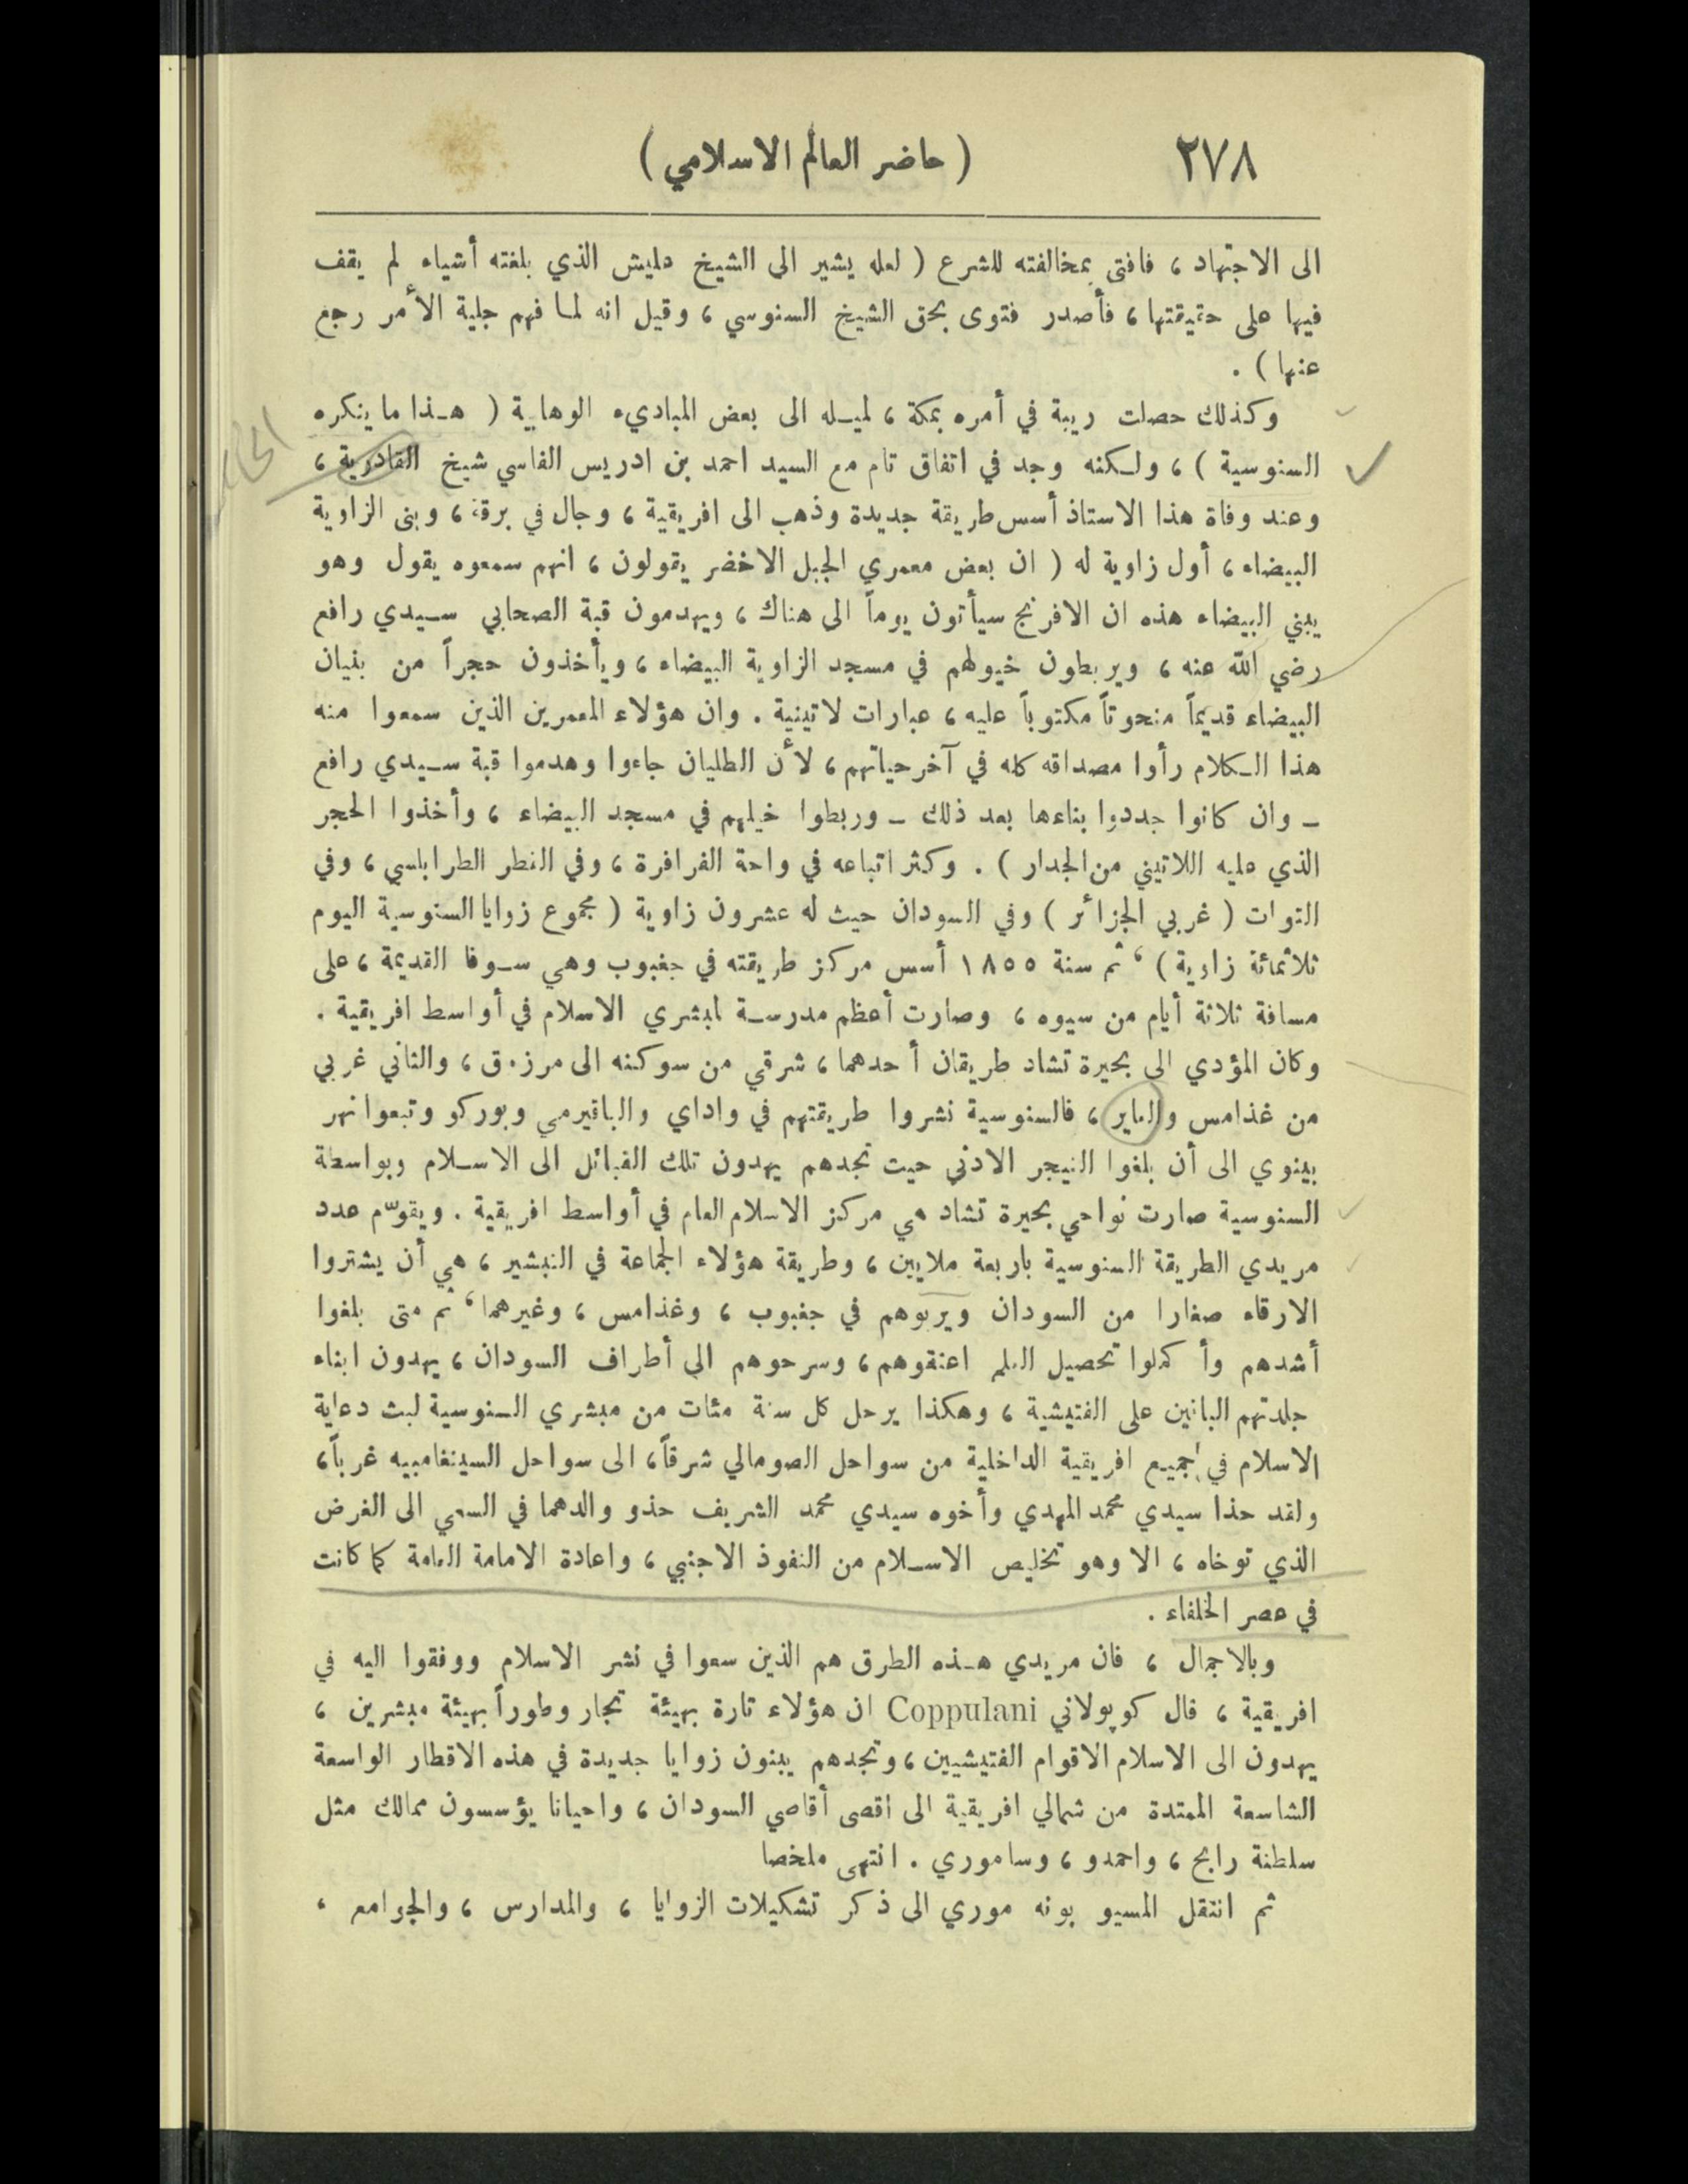 ٢٧٨
( حاضر العالم الاسلامي )
الى الاجتهاد ، فافتى بمخالفته للشرع ( لعله يشير الى الشيخ عليش الذي بلغته أشياء لم يقف
فيها على حقيقتها ، فأصدر فتوى بحق الشيخ السنوسي ، وقيل انه لما فهم جلية الأمر رجع
عنها ) .
وكذلك حصلت ريبة في أمره بمكة ، لميله الى بعض المباديء الوهابية ( هذا ما ينكره
السنوسية ) ، ولكنه وجد في اتفاق تام مع السيد احمد بن ادريس الفاسي شيخ القادرية ،
وعند وفاة هذا الاستاذ أسس طريقة جديدة وذهب الى افريقية ، وجال في برقة ، وبنى الزاوية
البيضاء ، أول زاوية له ( ان بعض معمري الجبل الاخضر يقولون ، انهم سمعوه يقول وهو
يبني البيضاء هذه ان الافرنج سيأتون يوماً الى هناك ، ويهدمون قبة الصحابي سيدي رافع
رضي الله عنه ، ويربطون خيولهم في مسجد الزاوية البيضاء ، ويأخذون حجراً من بنيان
البيضاء قديماً منحوتاً مكتوباً عليه ، عبارات لاتينية . وان هؤلاء المعمرين الذين سمعوا منه
هذا الكلام رأوا مصداقه كله في آخر حياتهم ، لأن الطليان جاءوا وهدموا قبة سيدي رافع
ـ وان كانوا جددوا بناءها بعد ذلك ـ وربطوا خيلهم في مسجد البيضاء ، وأخذوا الحجر
الذي عليه اللاتيني من الجدار ) . وكثر اتباعه في واحة الفرافرة ، وفي القطر الطرابلسي ، وفي
التوات ( غربي الجزائر ) وفي السودان حيث له عشرون زاوية ( مجموع زوايا السنوسية اليوم
ثلاثمائة زاوية ) ، ثم سنة ١٨٥٥ أسس مركز طريقته في جغبوب وهي سوفا القديمة ، على
مسافة ثلاثة أيام من سيوه ، وصارت أعظم مدرسة لمبشري الاسلام في أواسط افريقية .
وكان المؤدي الى بحيرة تشاد طريقان أحدهما ، شرقي من سوكنه الى مرزق ، والثاني غربي
من غذامس والعاير ، فالسنوسية نشروا طريقتهم في واداي والباقيرمي وبوركو وتبعوا نهر
بينوي الى أن بلغوا النيجر الادنى حيت تجدهم يهدون تلك القبائل الى الاسلام وبواسطة
السنوسية صارت نواحي بحيرة تشاد هي مركز الاسلام العام في أواسط افريقية . ويقوّم عدد
مريدي الطريقة السنوسية باربعة ملايين ، وطريقة هؤلاء الجماعة في التبشير ، هي أن يشتروا
الارقاء صغارا من السودان ويربوهم في جغبوب ، وغذامس ، وغيرهما ، ثم متى بلغوا
أشدهم وأكملوا تحصيل العلم اعتقوهم ، وسرحوهم الى أطراف السودان ، يهدون ابناء
جلدتهم الباقين على الفتيشية ، وهكذا يرحل كل سنة مئات من مبشري السنوسية لبث دعاية
الاسلام في جميع افريقية الداخلية من سواحل الصومالي شرقاً ، الى سواحل السينغامبيه غرباً ،
ولقد حذا سيدي محمد المهدي وأخوه سيدي محمد الشريف حذو والدهما في السعي الى الغرض
الذي توخاه ، الا وهو تخليص الاسلام من النفوذ الاجنبي ، واعادة الامامة العامة كما كانت
في عصر الخلفاء .
وبالاجمال ، فان مريدي هذه الطرق هم الذين سعوا في نشر الاسلام ووفقوا اليه في
افريقية ، قال كوپولاني Coppulani ان هؤلاء تارة بهيئة تجار وطوراً بهيئة مبشرين ،
يهدون الى الاسلام الاقوام الفتيشيين ، وتجدهم يبنون زوايا جديدة في هذه الاقطار الواسعة
الشاسعة الممتدة من شمالي افريقية الى اقصى أقاصي السودان ، واحيانا يؤسسون ممالك مثل
سلطنة رابح ، واحمدو ، وساموري . انتهى ملخصا
ثم انتقل المسيو بونه موري الى ذكر تشكيلات الزوايا ، والمدارس ، والجوامع ،